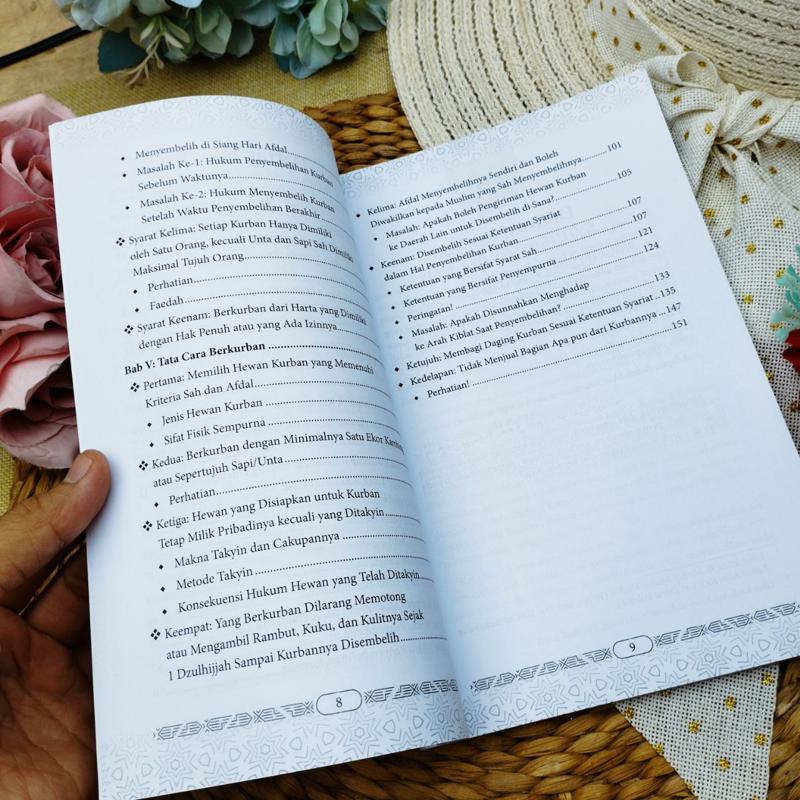 • Menyembelih di Siang Hari Afdal..........
• Masalah Ke-1: Hukum Penyembelihan Kurban
Sebelum Waktunya..........
• Masalah Ke-2: Hukum Menyembelih Kurban
Setelah Waktu Penyembelihan Berakhir..........
❖ Syarat Kelima: Setiap Kurban Hanya Dimiliki
oleh Satu Orang, kecuali Unta dan Sapi Sah Dimiliki
Maksimal Tujuh Orang..........
• Perhatian..........
• Faedah..........
❖ Syarat Keenam: Berkurban dari Harta yang Dimiliki
dengan Hak Penuh atau yang Ada Izinnya..........
Bab V: Tata Cara Berkurban ..........
❖ Pertama: Memilih Hewan Kurban yang Memenuhi
Kriteria Sah dan Afdal..........
• Jenis Hewan Kurban ..........
• Sifat Fisik Sempurna ..........
❖ Kedua: Berkurban dengan Minimalnya Satu Ekor Kambing
atau Sepertujuh Sapi/Unta ..........
• Perhatian..........
❖ Ketiga: Hewan yang Disiapkan untuk Kurban
Tetap Milik Pribadinya kecuali yang Ditakyin..........
• Makna Takyin dan Cakupannya ..........
• Metode Takyin ..........
• Konsekuensi Hukum Hewan yang Telah Ditakyin..........
❖ Keempat: Yang Berkurban Dilarang Memotong
atau Mengambil Rambut, Kuku, dan Kulitnya Sejak
1 Dzulhijjah Sampai Kurbannya Disembelih..........
8
• Kelima: Afdal Menyembelihnya Sendiri dan Boleh
Diwakilkan kepada Muslim yang Sah Menyembelihnya..........101
• Masalah: Apakah Boleh Pengiriman Hewan Kurban
ke Daerah Lain untuk Disembelih di Sana?..........105
• Keenam: Disembelih Sesuai Ketentuan Syariat
dalam Hal Penyembelihan Kurban..........107
• Ketentuan yang Bersifat Syarat Sah..........107
• Ketentuan yang Bersifat Penyempurna ..........121
• Peringatan! ..........124
• Masalah: Apakah Disunnahkan Menghadap
ke Arah Kiblat Saat Penyembelihan? ..........133
• Ketujuh: Membagi Daging Kurban Sesuai Ketentuan Syariat ..135
• Kedelapan: Tidak Menjual Bagian Apa pun dari Kurbannya ..147
• Perhatian! ..........151
9